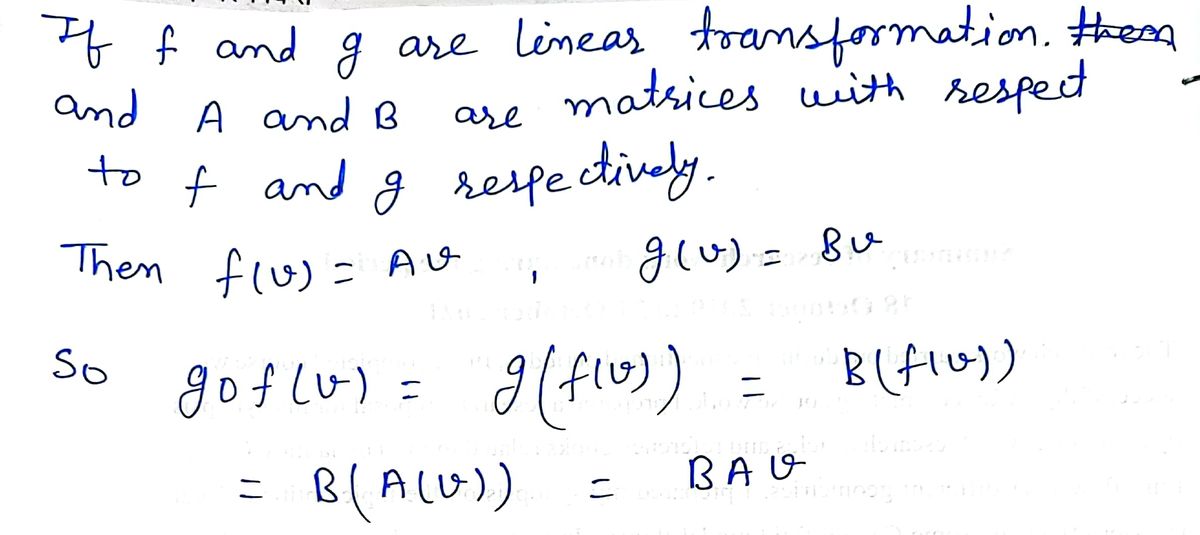 If f and g are linear transformation. them
and A and B are matrices with respect
to f and g respectively.
Then f(v) = Av , g(v) = Bv
So gof(v) = g(f(v)) = B(f(v))
= B(A(v)) = BAv